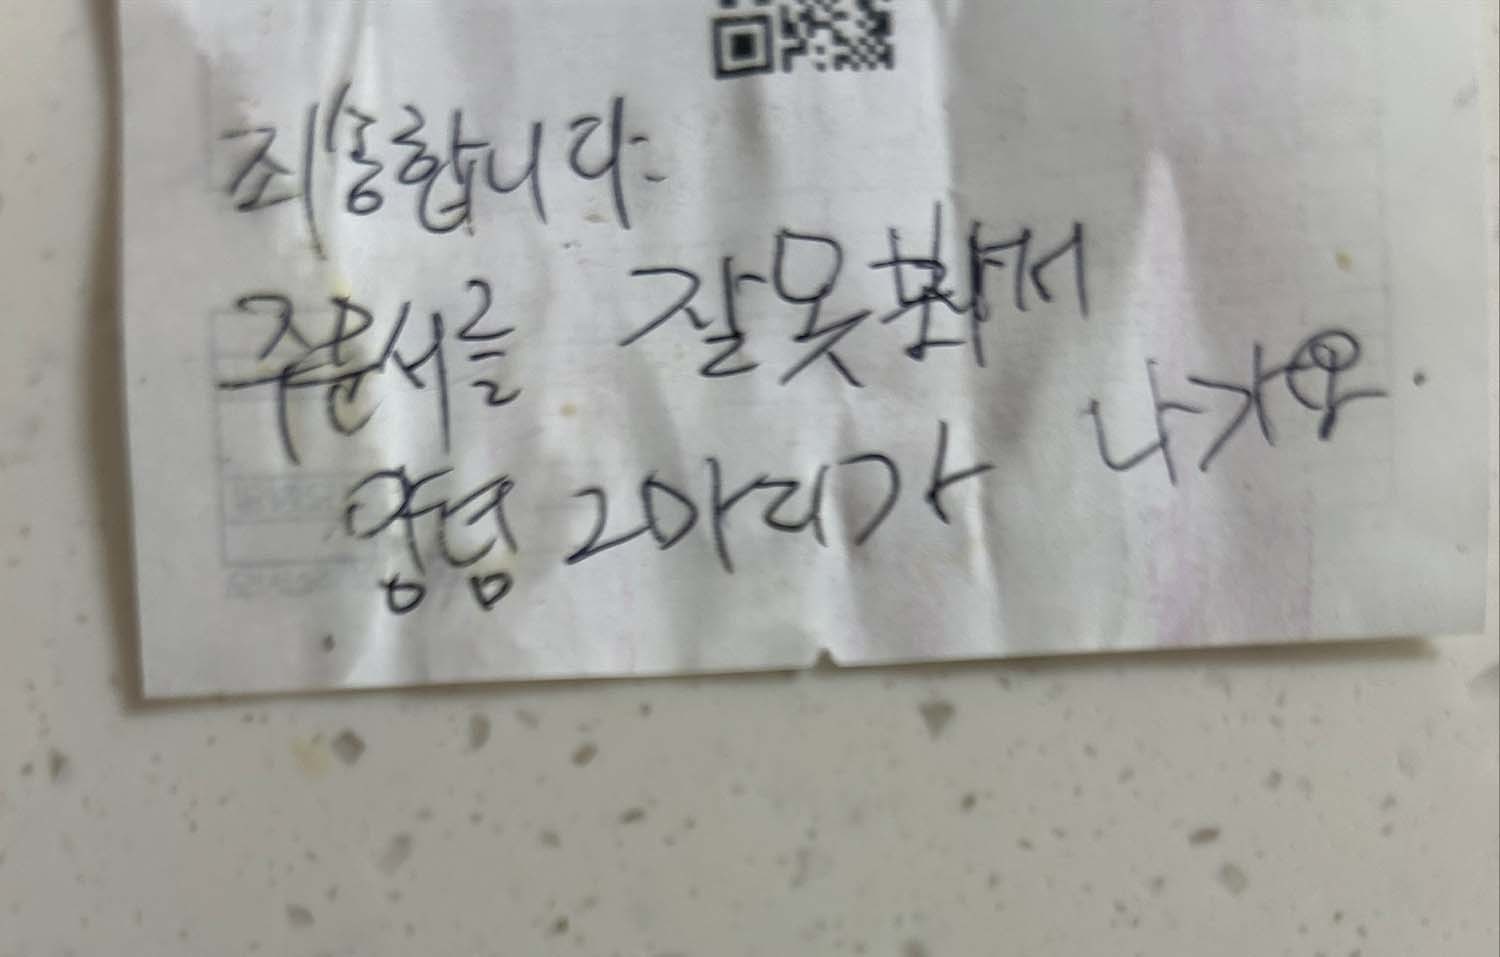 죄송합니다.
주문서를 잘못 봐서
양념 2마리가 나가요.